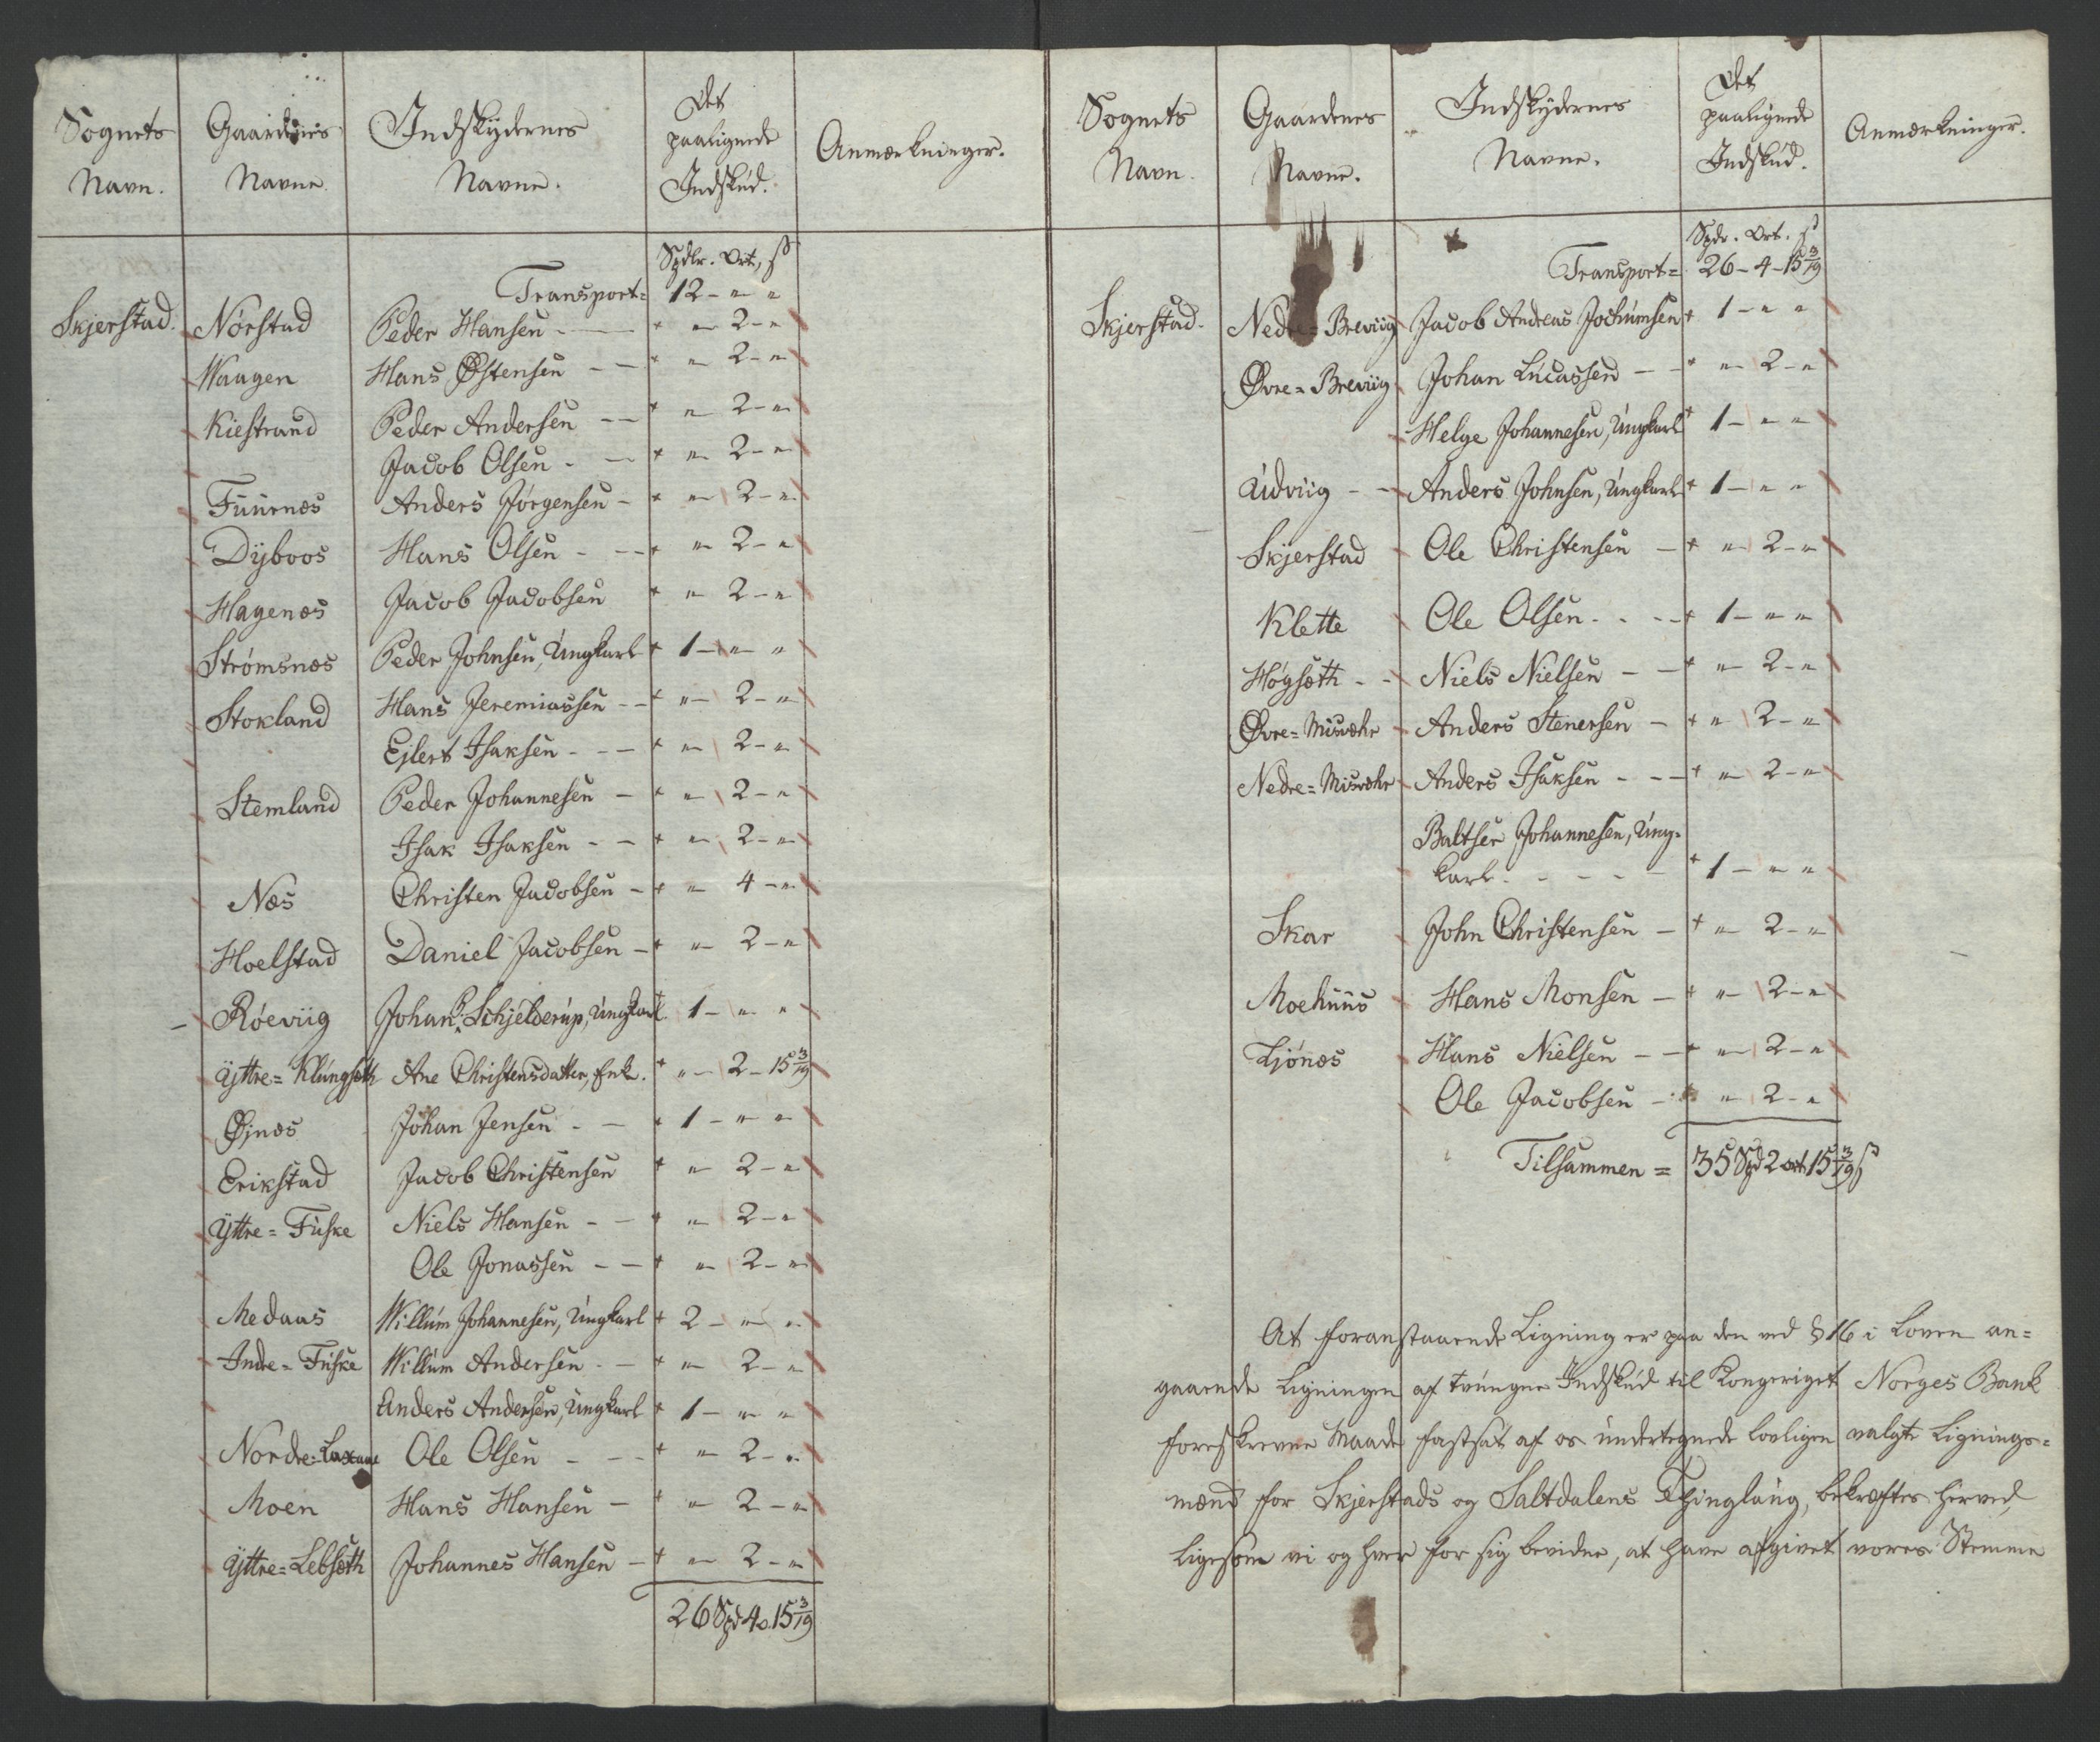 Sognets Navn. Gaardenes Navne. Indskydernes Navne. Det paalignede Indskud. Anmærkninger.
Spdlr. Ort, ß
Transport = 12 – " "
Skjerstad. Nørstad Peder Hansen – " – 2 – "
Waagen Hans Østensen – – " – 2 – "
Kiestrand Peder Andersen – – " – 2 – "
Jacob Olsen – – " – 2 – "
Fuurnæs Anders Jørgensen – " – 2 – "
Dyboos Hans Olsen – – " – 2 – "
Hagenæs Jacob Jacobsen " – 2 – "
Strømsnæs Peder Johnsen, Ungkarl 1 – " – "
Stokland Hans Jeremiassen – – " – 2 – "
Ejlert Isaksen – – – " – 2 – "
Stemland Peder Johannesen – " – 2 – "
Isak Isaksen – – " – 2 – "
Næs Christen Jacobsen – " – 4 – "
Hoelstad Daniel Jacobsen – " – 2 – "
Røeviig Johan P. Schjelderup, Ungkarl. 1 – " – "
Yttre = Klungseth Ane Christensdatter, Enke. " – 2 – 15 3/19
Øjnæs Johan Jensen – – 1 – " – "
Erikstad Jacob Christensen " – 2 – "
Yttre = Fuske Niels Hansen – – " – 2 – "
Ole Jonassen – – " – 2 – "
Medaas Willum Johannesen, Ungkarl 2 – " – "
Indre = Fuske Willum Andersen – – " – 2 – "
Anders Andersen, Ungkarl 1 – " – "
Nordre = Laxaae Ole Olsen – – – " – 2 – "
Moen Hans Hansen – " – 2 – "
Yttre = Lebseth Johannes Hansen – " – 2 – "
26 Spd 4 o. 15 3/19
Sognets Navn. Gaardenes Navne. Indskydernes Navne. Det paalignede Indskud. Anmærkninger.
Spdr. Ort. ß
Transport = 26 – 4 – 15 3/19
Skjerstad. Nedre = Breviig Jacob Andreas Jochumsen 1 – " "
Øvre = Breviig Johan Lucassen – – " – 2 – "
Helge Johannesen, Ungkarl 1 – " "
Udviig – – Anders Johnsen, Ungkarl 1 – " "
Skjerstad Ole Christensen – " – 2 – "
Klette Ole Olsen – – – 1 – " "
Høgseth – – Niels Nielsen – – " – 2 – "
Øvre = Misvæhr Anders Stenersen – " – 2 – "
Nedre = Misvæhr Anders Isaksen – – – " – 2 – "
Baltser Johannesen, Ung=
karl – – – – – 1 – " "
Skar John Christensen – " – 2 – "
Moehuus Hans Monsen – " – 2 – "
Ljønæs Hans Nielsen – – " – 2 – "
Ole Jacobsen – " – 2 – "
Tilsammen = 35 Spd 2 ort 15 3/19 ß
At foranstaaende Ligning er paa den ved § 16 i Loven an=
gaaende Ligningen af tvungne Indskud til Kongeriget Norges Bank
foreskrevne Maade fastsat af os undertegnede lovligen valgte Lignings=
mænd for Skjerstads og Saltdalens Thinglaug, bekræftes herved,
ligesom vi og hver for sig bevidne, at have afgivet vores Stemme